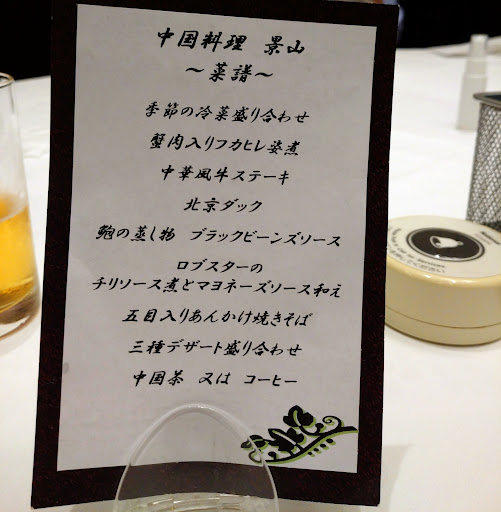 中国料理 景山
～菜譜～
季節の冷菜盛り合わせ
蟹肉入りフカヒレ姿煮
中華風牛ステーキ
北京ダック
鮑の蒸し物 ブラックビーンズソース
ロブスターの
チリソース煮とマヨネーズソース和え
五目入りあんかけ焼きそば
三種デザート盛り合わせ
中国茶 又は コーヒー